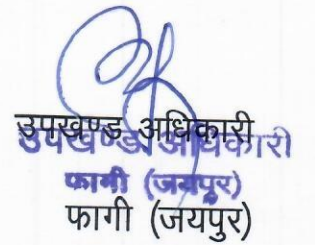 उपखण्ड अधिकारी
उपखण्ड अधिकारी
फागी (जयपुर)
फागी (जयपुर)